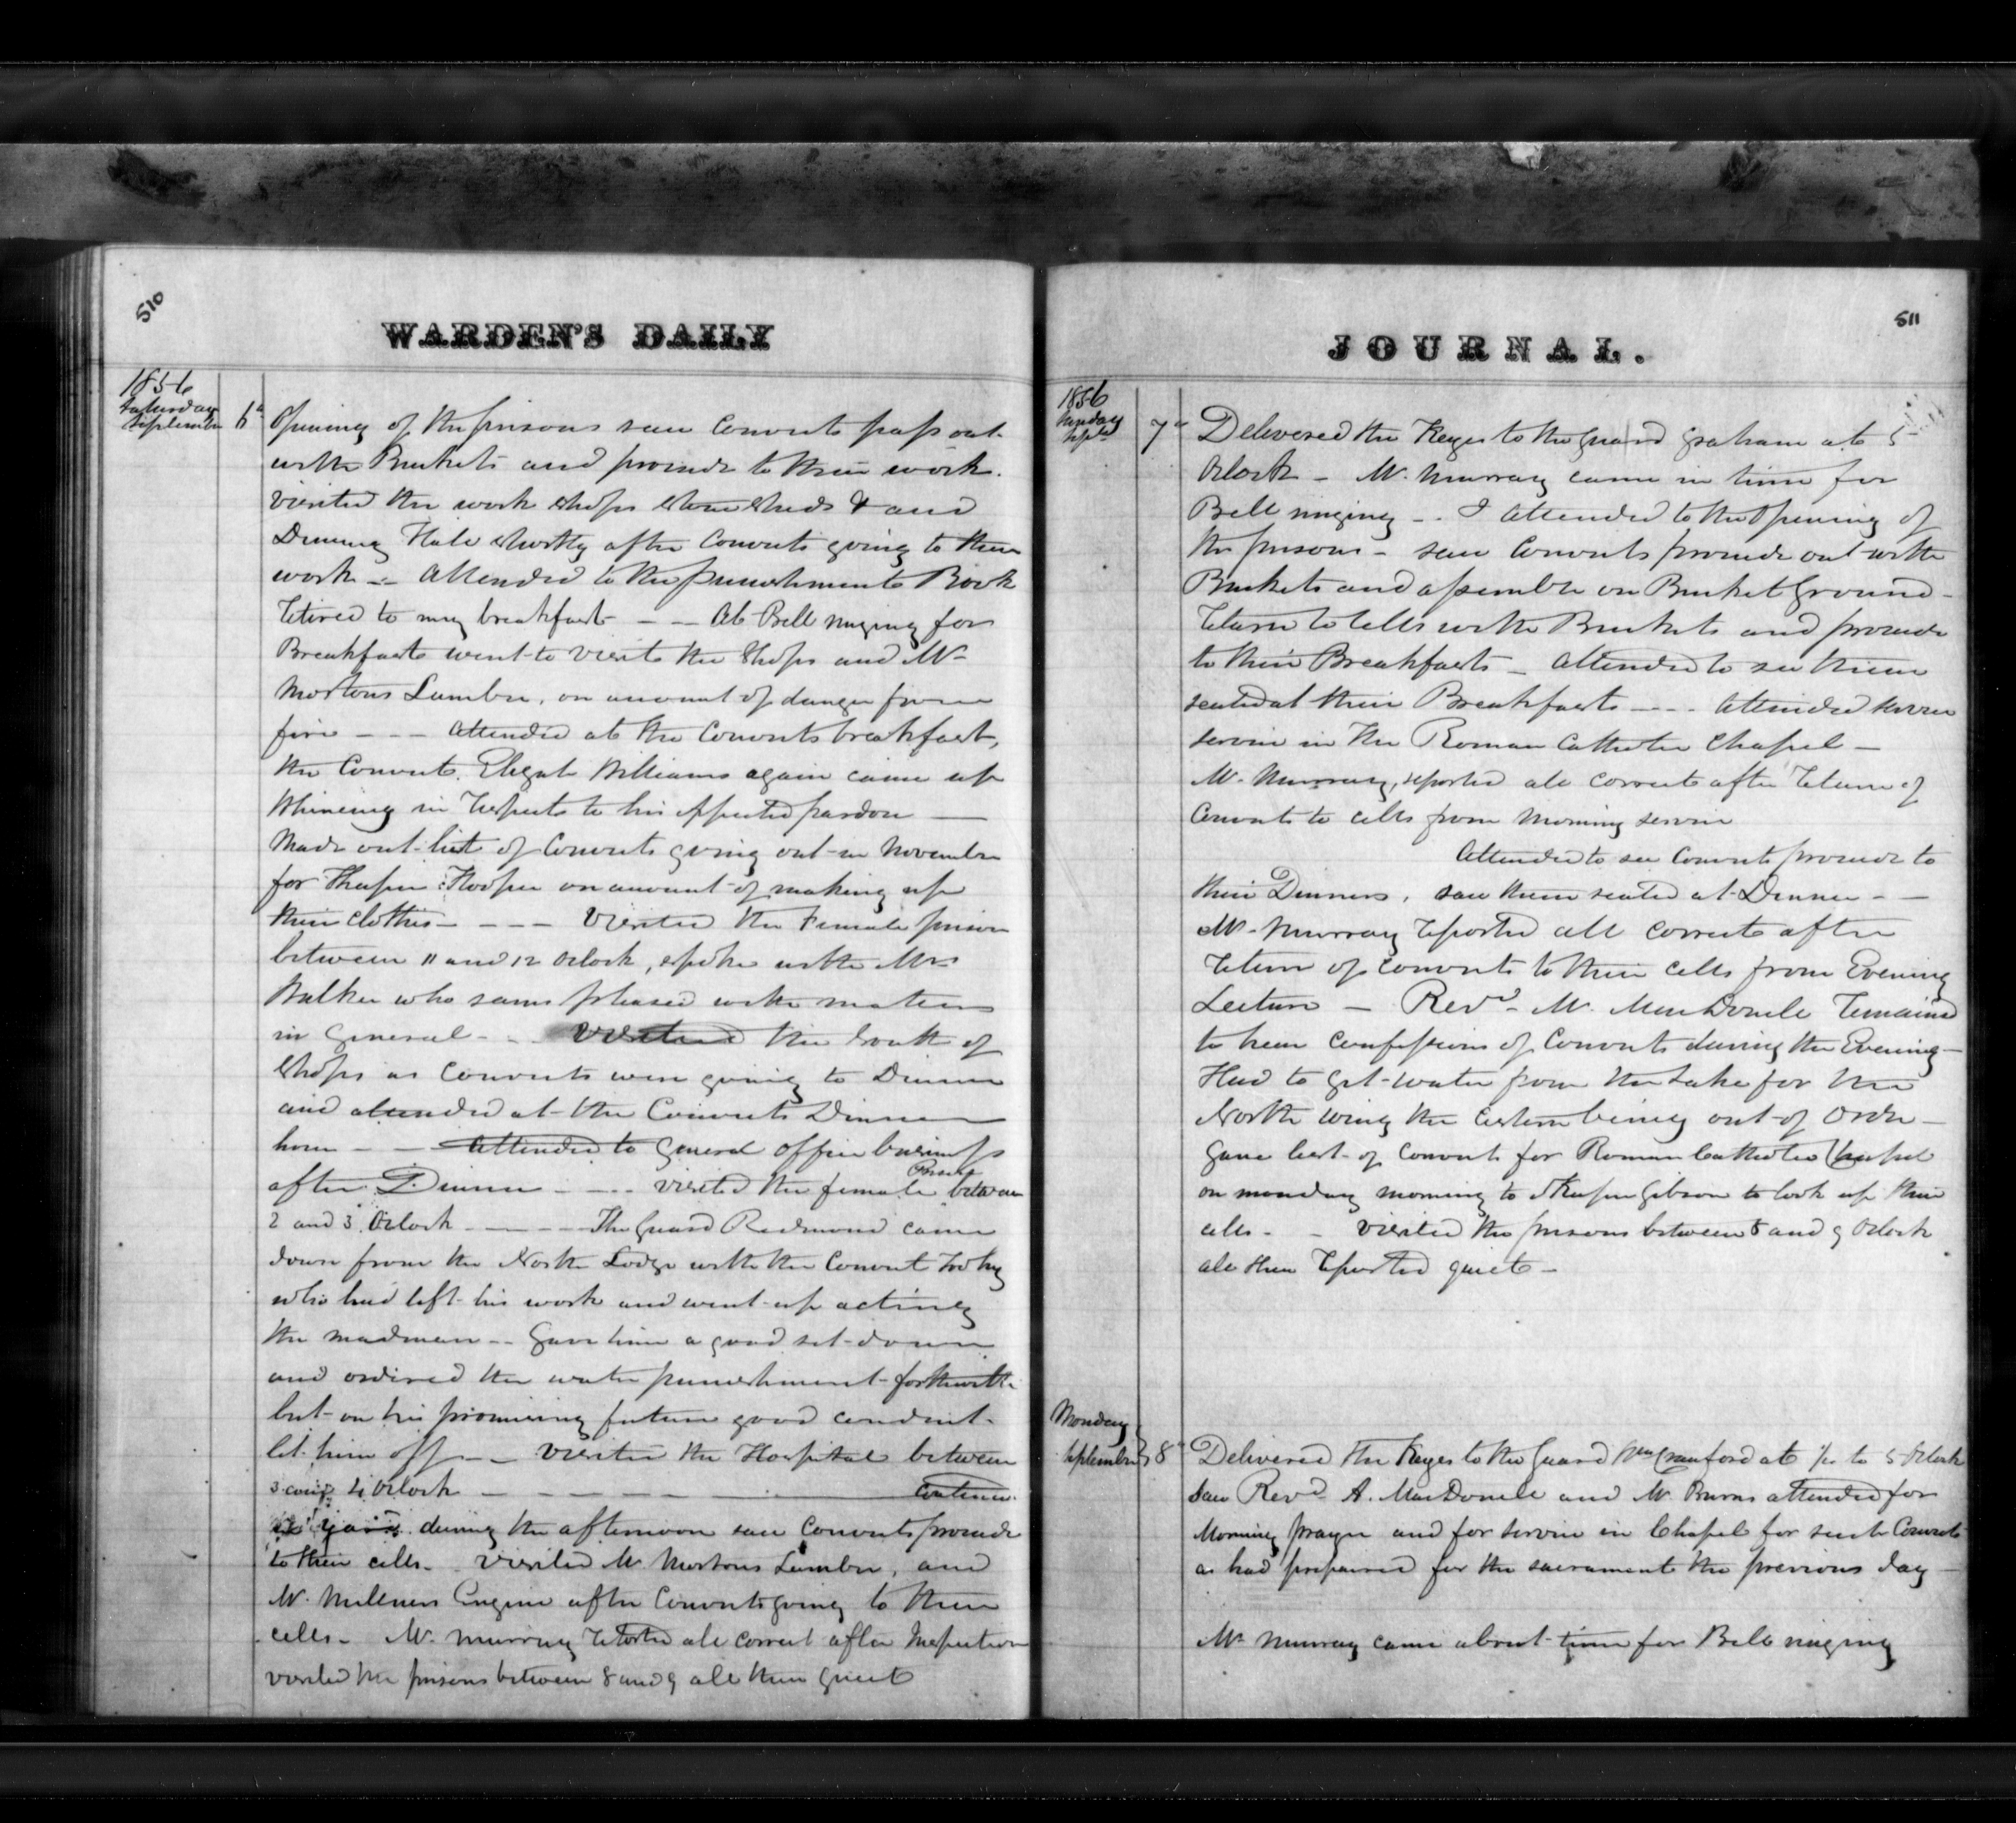 510
WARDEN'S DAILY
1856
Saturday
September 6th
Opening of the prisons saw Convicts pass out
with Buckets and proceed to their work.
visited the work shops stone sheds & and
Dinning Hall shortly after Convicts going to their
work -- Attended to the punishment Book
retired to my breakfast -- At Bell ringing for
Breakfast went to visit the Shops and Mr
Mortons Lumber, on account of danger from
fire --- Attended at the Convicts breakfast,
the Convict Williams again came up
Whineing in respects to his expected pardon —
Made out list of Convicts going out in November
for Keeper Hooper on account of making up
their clothes --- Visited the Female prison
between 11 and 12 Oclock, spoke with Mrs
Walker who seems pleased with matters
in general -- Visited the South of
Shops as Convicts were going to Dinner
and attended at the Convicts Dinner
hour -- Attended to General office business
after Dinner --- visited the female Prison between
2 and 3 Oclock ---- The Guard Redmond came
down from the North Lodge with the Convict
who had left his work and went up acting
the madman -- Gave him a good set down
and ordered the water punishment forthwith
but on his promising future good conduct
let him off -- visited the Hospital between
3 and 4 Oclock ------
yard during the afternoon saw Convicts proceed
to their cells - visited Mr Mortons Lumber, and
Mr Millners Engine after Convicts going to their
cells - Mr Murray reported all correct after Inspection
visited the prisons between 8 and 9 all then quiet
JOURNAL.
511
1856
Sunday
Sept 7th
Delivered the Keyes to the Guard Graham at 5
Oclock - Mr Murray came in time for
Bell ringing -- I attended to the Opening of
the prisons - saw Convicts proceed out with
Buckets and assemble on Bucket Ground -
return to cells with Buckets and proceed
to their Breakfasts - Attended to see them
seated at their Breakfasts --- Attended
service in the Roman Catholic Chapel —
Mr Murray, reported all correct after return of
Convicts to cells from Morning service
Attended to see Convicts proceed to
their Dinners, saw them seated at Dinner --
Mr Murray reported all correct after
return of Convicts to their cells from Evening
Lecture — Revd Mr MacDonell remained
to hear Confessions of Convicts during the Evening -
Had to get water from the Lake for the
North wing the Cistern being out of order -
Gave list of Convicts for Roman Catholic Chapel
on monday morning to Keeper Gibson to lock up their
cells - - Visited the prisons between 8 and 9 Oclock
all then reported quiet -
Monday
September 8th
Delivered the Keyes to the Guard Wm Crawford at ¼ to 5 Oclock
Saw Revd A. MacDonell and Mr Burns attended for
Morning prayer and for service in Chapel for such Convicts
as had prepared for the sacrament the previous day —
Mr Murray came about time for Bell ringing